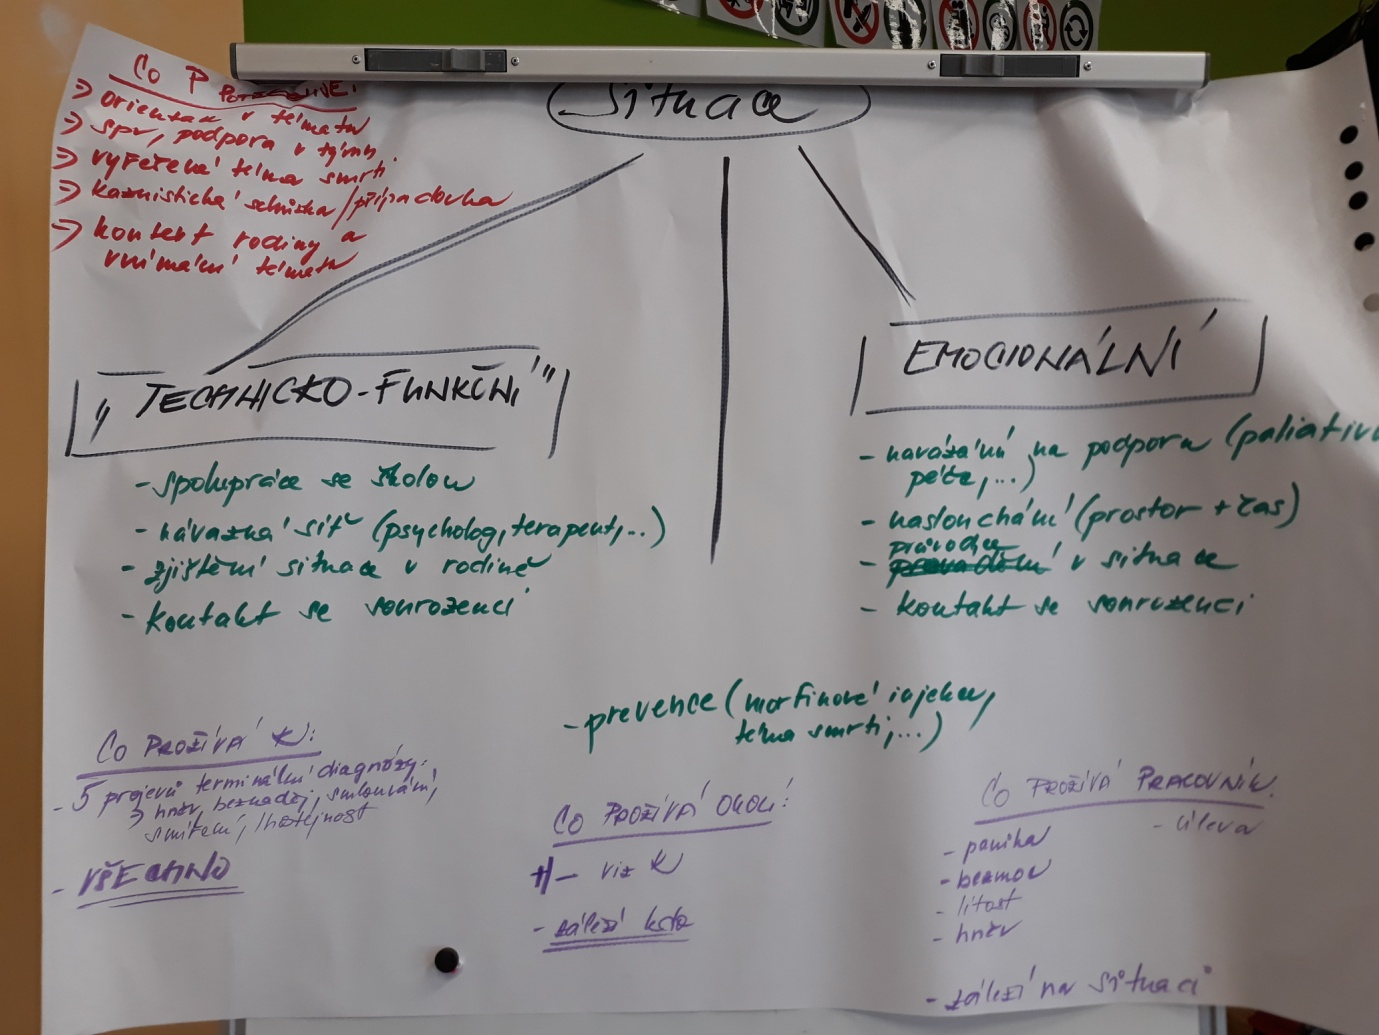 Situace
Co P POTŘEBUJE:
→ orientace v tématu
→ spv, podpora v týmu
→ vyřešená téma smrti
→ kazuistická schůzka/případovka
→ kontext rodiny a
vnímání tématu
„TECHNICKO-FUNKČNÍ"
- spolupráce se školou
- návazná síť (psycholog, terapeut,..)
- zjištění situace v rodině
- kontakt se sourozenci
EMOCIONÁLNÍ
- navázání na podporu (paliativní
péče,...)
- naslouchání (prostor + čas)
průvodce
- v situace
- kontakt se sourozenci
- prevence (morfinové injekce,
téma smrti,...)
CO PROŽÍVÁ K:
- 5 projevů terminální diagnózy:
→ hněv, beznaděj, smlouvání,
smíření, lhostejnost
- VŠECHNO
CO PROŽÍVÁ OKOLÍ:
+/- viz K
- záleží kdo
CO PROŽÍVÁ PRACOVNÍK:
- panika
- úleva
- bezmoc
- lítost
- hněv
- záleží na situaci